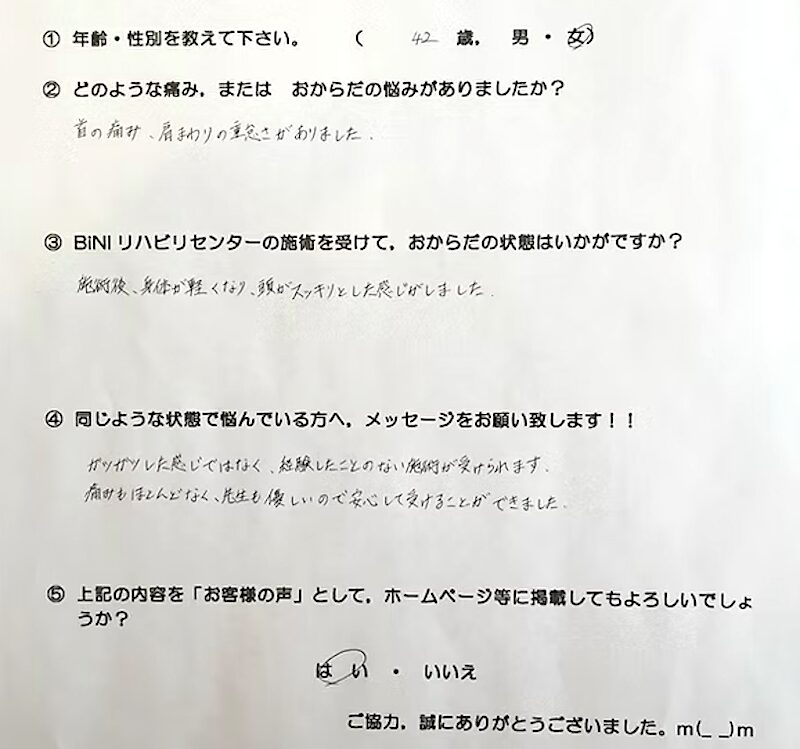 ① 年齢・性別を教えて下さい。 ( 42 歳, 男 ・ 女)
② どのような痛み, または おからだの悩みがありましたか？
首の痛み、肩まわりの重怠さがありました.
③ BiNI リハビリセンターの施術を受けて, おからだの状態はいかがですか？
施術後、身体が軽くなり、頭がスッキリとした感じがしました.
④ 同じような状態で悩んでいる方へ, メッセージをお願い致します！！
ガツガツした感じではなく、経験したことのない施術が受けられます.
痛みもほとんどなく、先生も優しいので安心して受けることができました.
⑤ 上記の内容を「お客様の声」として, ホームページ等に掲載してもよろしいでしょ
うか？
はい ・ いいえ
ご協力, 誠にありがとうございました。m(_ _)m